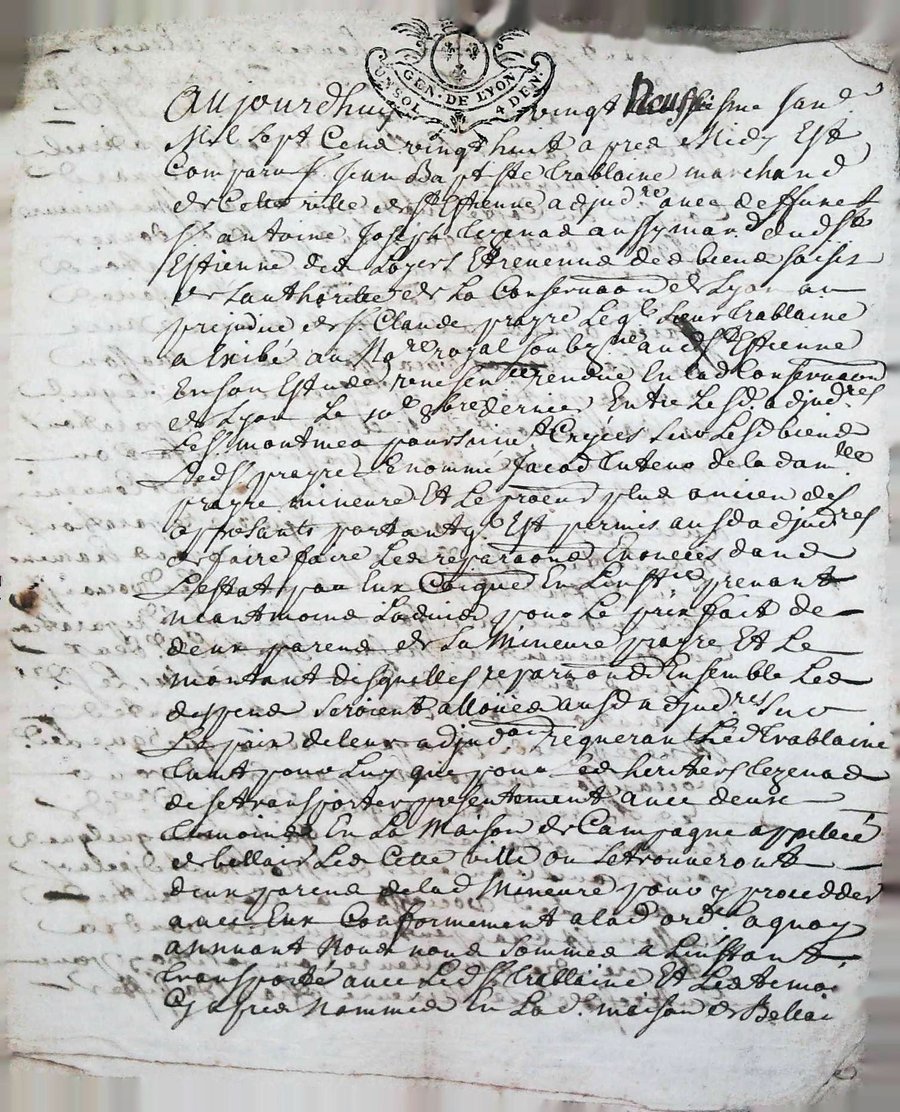 GEN · DE LYON
UN SOL 4 DEN
aujourdhuy vingt Neufiesme
Mil Sept Cend vingt huit apred Midy Est
Comparu S. Jean Baptiste Trablaine marchand
de Cette ville de St Estienne adjud.re avec deffunct
S. antoine Joseph Lezenad aussy mar.d dud St
Estienne ded Loyers Et revenud ded biend saisis
de Lauthoritté de La Conservaon de Lyon au
prejudice de S. Claude prayre Leql. Sieur Trablaine
a Exibé au Nore royal soubsne aud St Estienne
En son Estude rendue En lad Conservaon
de Lyon Le 8bre dernier Entre Lesd adjudres
Le S. montmea poursuivt Cryées Sur Lesd biend
Dud S. prayre Enommé Jacod tuteur de la damlle
prayre mineure Et Le procur plud ancien des
opposants portant q. Est permis ausd adjudres
de faire faire Led reparaond Enoncées dand
Lestat par Eux prenant
neantmoind Ladvid pour Le prix fait de
deux parend de La Mineure prayre Et Le
montant desquelles reparaond Ensemble Led
despend seroient allouéd ausd adjudres Sur
Le prix de leur adjudaon requerant Led Trablaine
tant pour Luy que pour Led héritiers Lezenad
de se transporter presentement avec deux
temoind En La Maison de Campagne appellée
de bellair Led Cette ville ou se trouveront
deux parend delad Mineure pour y procedder
avec Eux Conformement alad ord. a quoy
annuant Noud noud sommed a Linstant
transporté avec Led S. Trablaine Et Led temo.
Cy apred Nomméd En La d. maison de Bellai